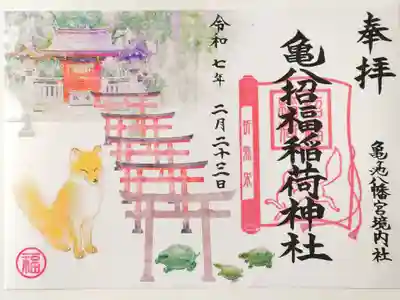 奉拝
亀池八幡宮境内社
亀八招福稲荷神社
令和七年 二月二十三日
福